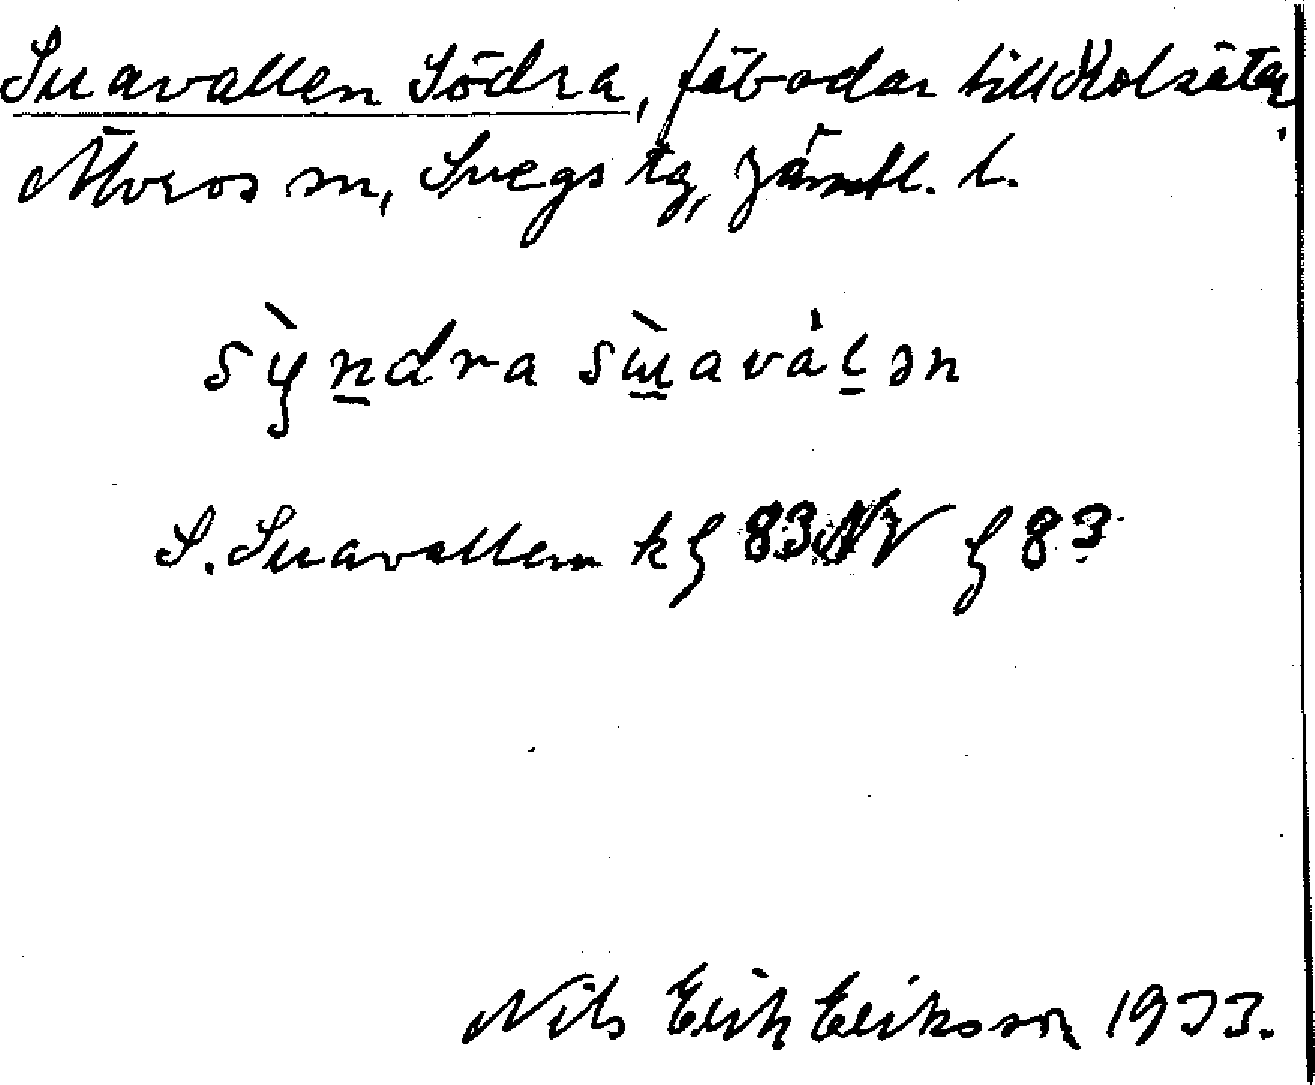 Suavallen Södra, fäbodar till Kolsätter,
Älvros sn, Svegs tg, Jämtl. l.
sỳndra sùavàlən
S. Suavallen k ζ 83 NV ζ 83
Nils Erik Eriksson 1933.